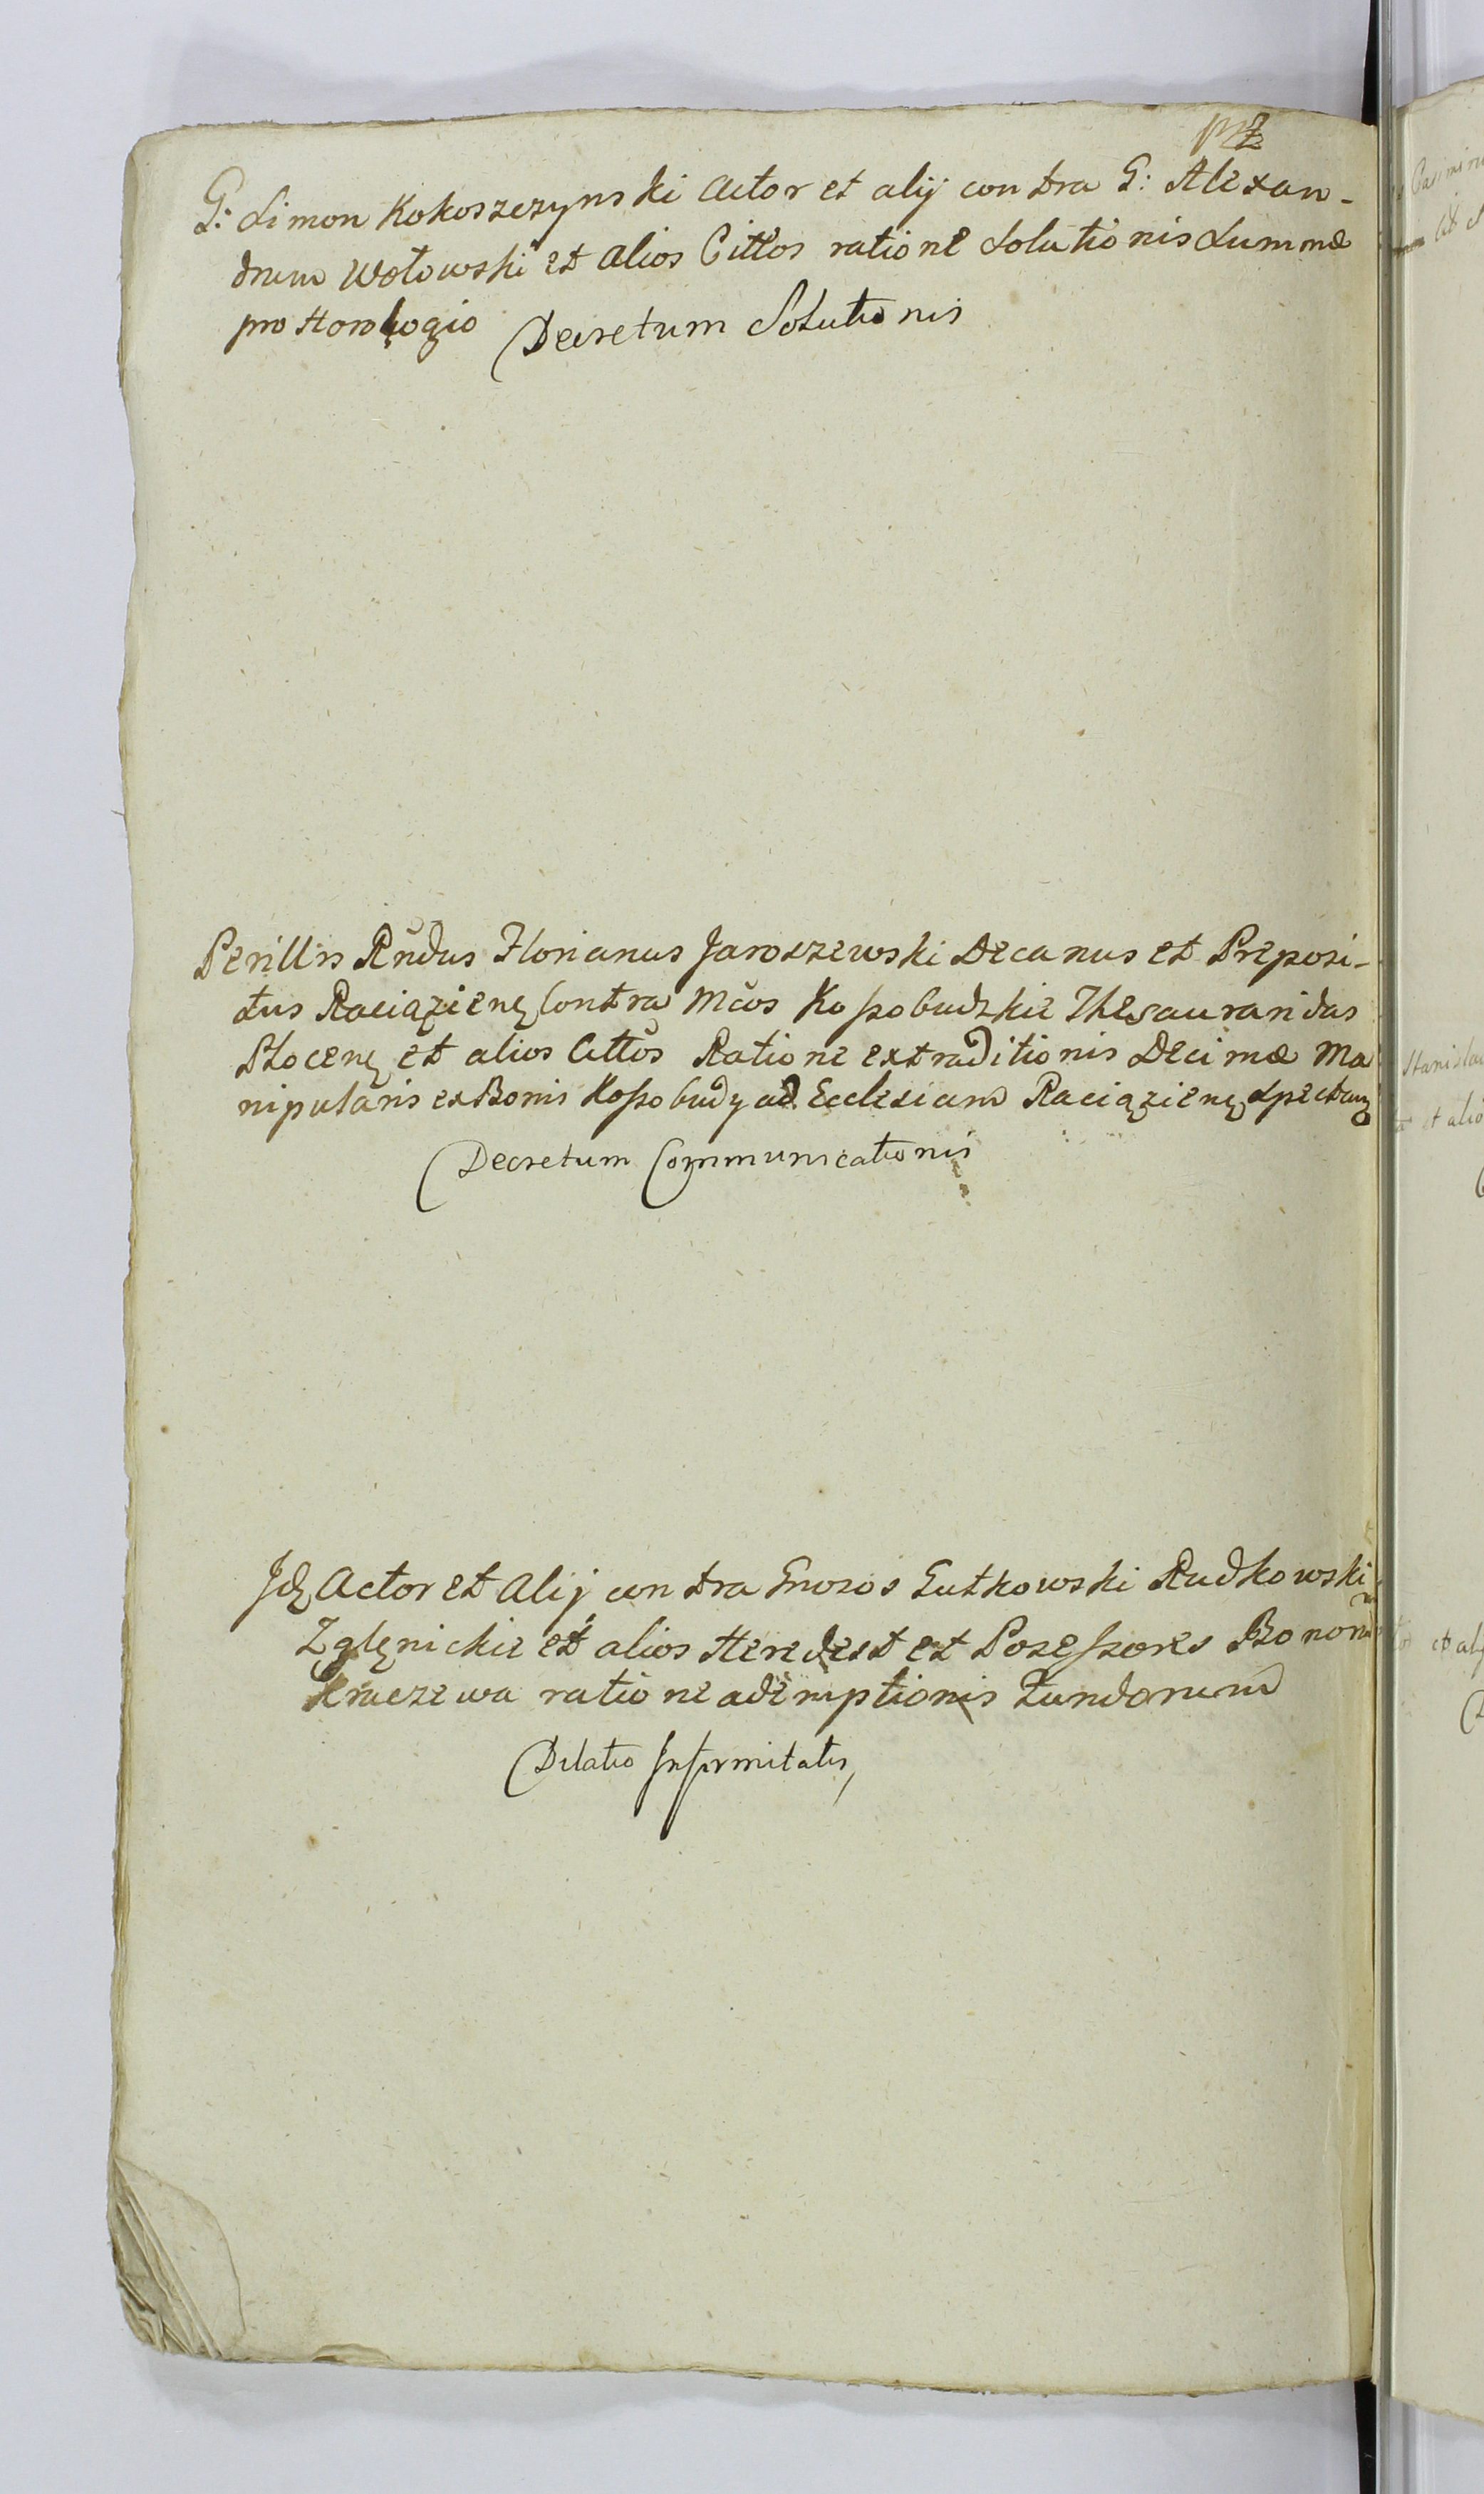 G: Simon Kokoszczynski Actor et alij contra G: Alexan-
drum Wołowski et alios Cittos ratione Solutionis Summæ
pro Horologio Decretum Solutionis
Perillris Rñdus Florianus Jaroszewski Decanus et Preposi-
tus Raciązienę Contra Mcos Kossobudzkie Thesauraridas
Płocenę et alios Cittos Ratione extraditionis Decimæ Ma
nipularis ex Bonis Kossobudy ad Ecclesiam Raciązienę Spectanę
Decretum Communicationis
Idę Actor et Alij contra Gnosos Gutkowski Rudkowski
Zglęnickie et alios Heredes et Possessores Bonorum
Kraczewa ratione ademptionis Fundorum
Dilatio Infirmitatis